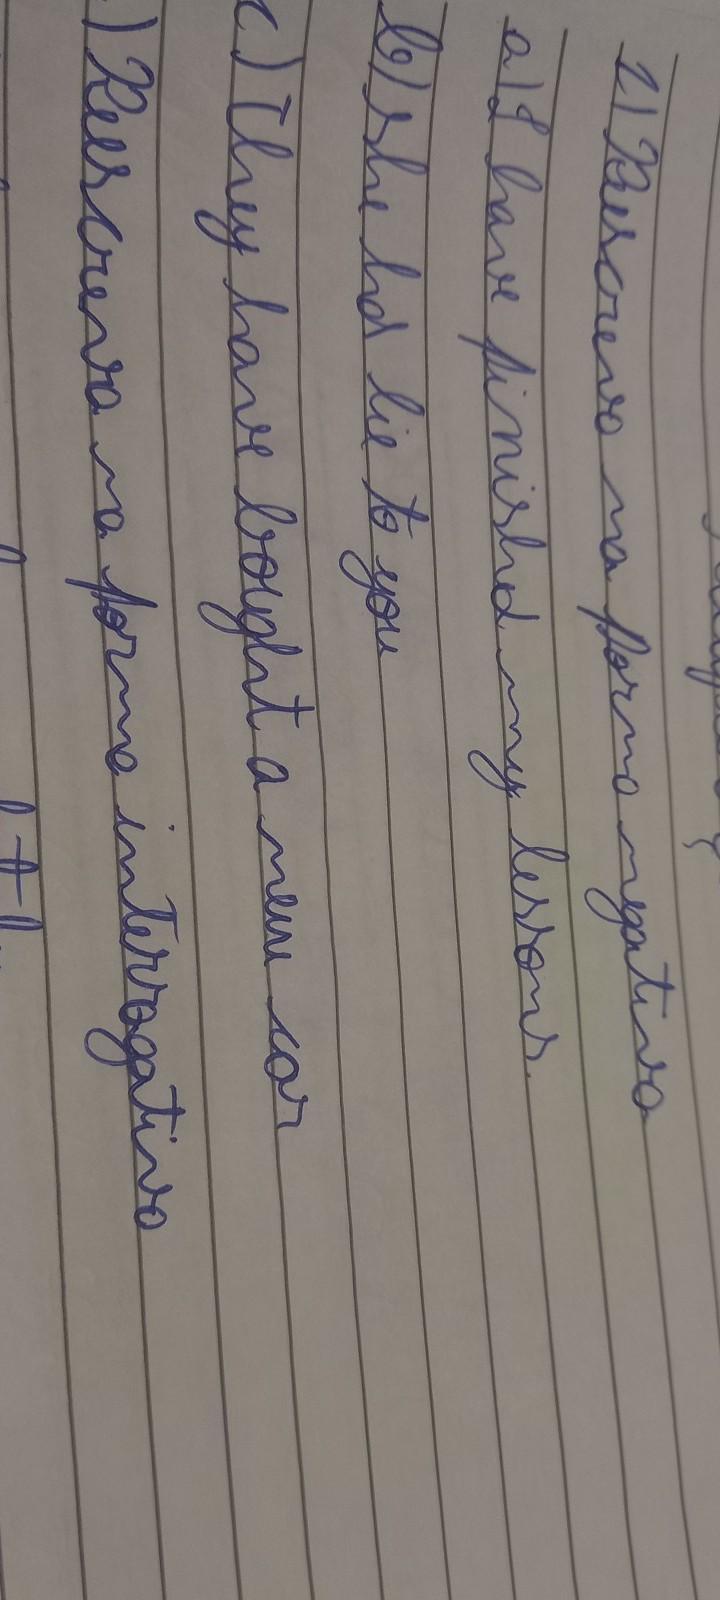 2) Reescreva na forma negativa
a) I have finished my lessons.
b) she hd lie to you
c) They have bought a new car
) Reescreva na forma interrogativa